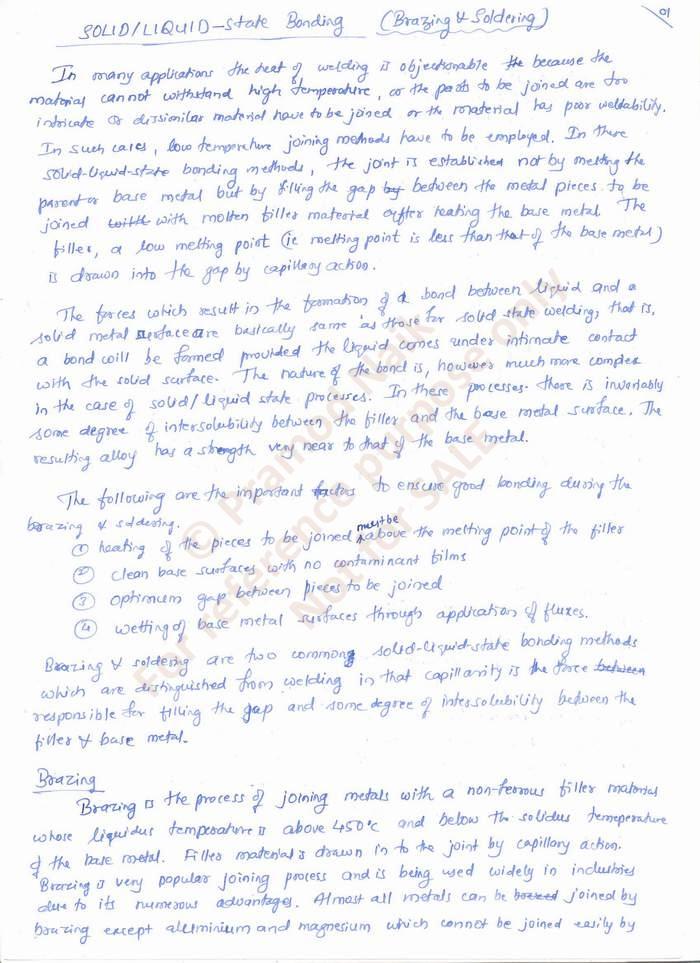 SOLID/LIQUID-State Bonding (Brazing & Soldering) 01
In many applications the heat of welding is objectionable the because the
material cannot withstand high temperature, or the parts to be joined are too
intricate or dissimilar material have to be joined or the material has poor weldability.
In such cases, low temperature joining methods have to be employed. In these
solid-liquid-state bonding methods, the joint is established not by melting the
parent or base metal but by filling the gap by between the metal pieces to be
joined with with molten filler material after heating the base metal. The
filler, a low melting point (ie melting point is less than that of the base metal)
is drawn into the gap by capillary action.
The forces which result in the formation of a bond between liquid and a
solid metal surface are basically same as those for solid state welding, that is,
a bond will be formed provided the liquid comes under intimate contact
with the solid surface. The nature of the bond is, however much more complex
in the case of solid/liquid state processes. In these processes. there is invariably
some degree of intersolubility between the filler and the base metal surface. The
resulting alloy has a strength very near to that of the base metal.
The following are the important factors to ensure good bonding during the
brazing & soldering.
① heating of the pieces to be joined must be above the melting point of the filler
② clean base surfaces with no contaminant films
③ optimum gap between pieces to be joined
④ wetting of base metal surfaces through application of fluxes.
Brazing & soldering are two common solid-liquid-state bonding methods
which are distinguished from welding in that capillarity is the force between
responsible for filling the gap and some degree of intersolubility between the
filler & base metal.
Brazing
Brazing is the process of joining metals with a non-ferrous filler material
whose liquidus temperature is above 450°C and below the solidus temeperature
of the base metal. Filler material is drawn in to the joint by capillary action.
Brazing is very popular joining process and is being used widely in industries
due to its numerous advantages. Almost all metals can be brazed joined by
brazing except aluminium and magnesium which cannot be joined easily by
© Pramod Naik
For reference purpose only
Not for SALE